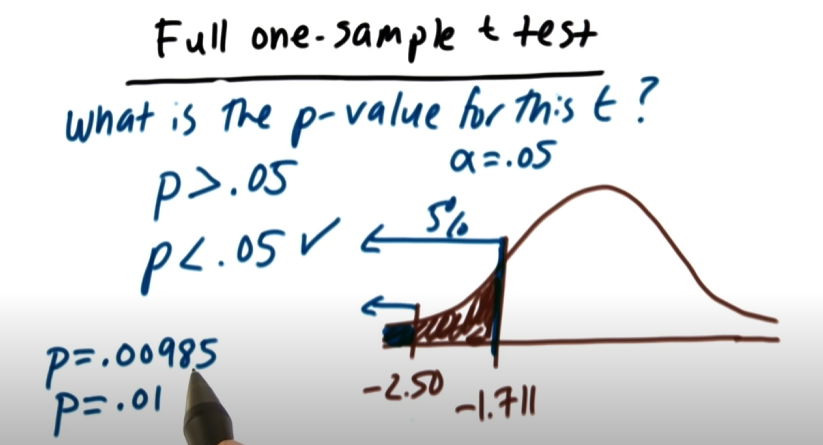 Full one-sample t test
What is the p-value for this t?
α=.05
p>.05
5%
p<.05 ✓
p=.00985
p=.01
-2.50
-1.711